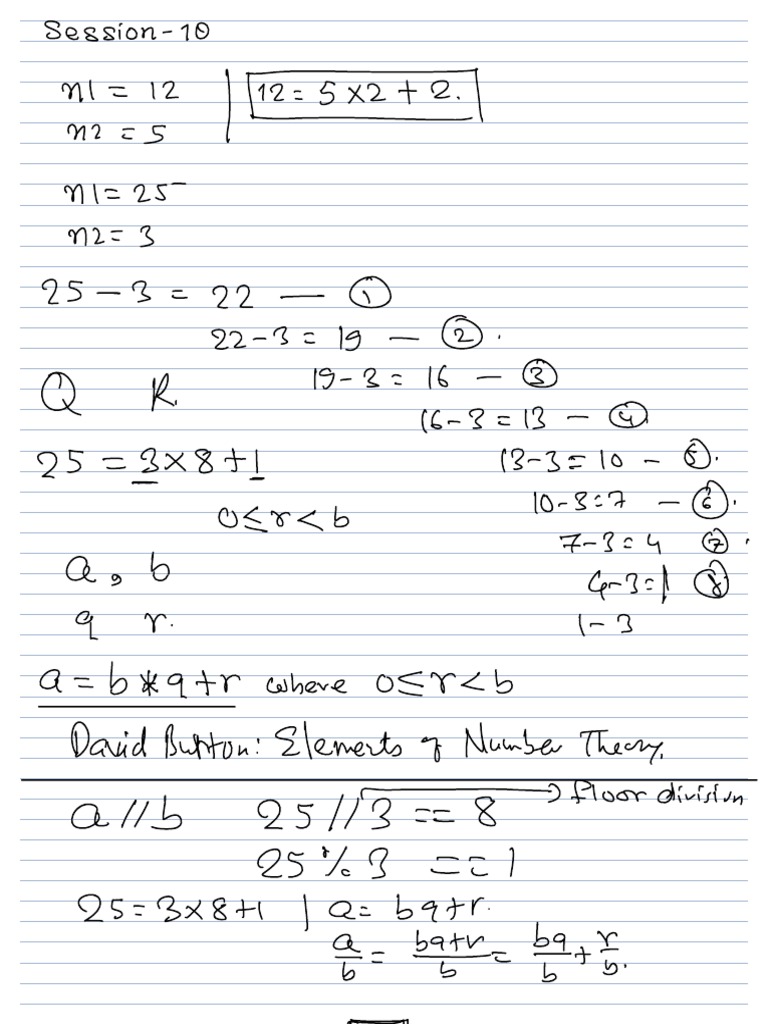 Session-10
n1 = 12 | 12 = 5 × 2 + 2.
n2 = 5
n1 = 25
n2 = 3
25 – 3 = 22 — ①
22 – 3 = 19 — ② .
19 – 3 = 16 — ③
Q R.
16 – 3 = 13 — ④
25 = 3 × 8 + 1
13 – 3 = 10 – ⑤.
10 – 3 = 7 – ⑥.
0 ≤ r < b
7 – 3 = 4 ⑦.
a, b
4 – 3 = 1 ⑧
q r.
1 – 3
a = b * q + r where 0 ≤ r < b
David Burton: Elements of Number Theory.
→ floor division
a // b 25 // 3 == 8
25 % 3 == 1
25 = 3 × 8 + 1 | a = bq + r.
a/b = (bq + r)/b = bq/b + r/b.